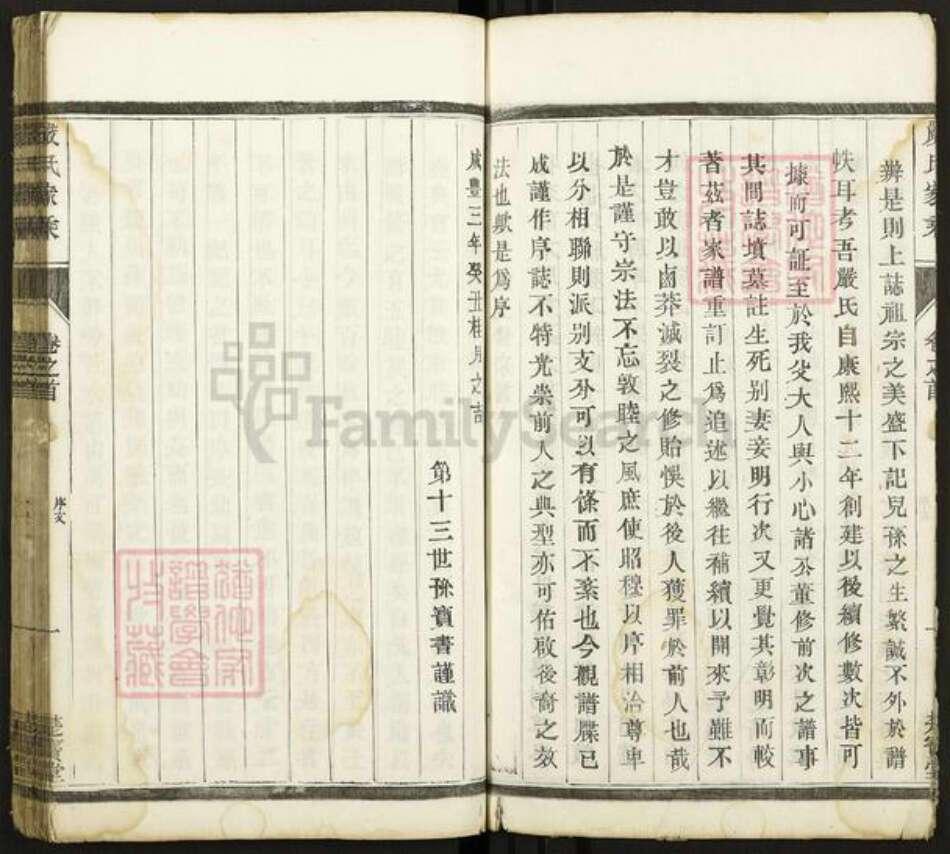 嚴氏家乘
卷之首
楚寶堂
辨是則上誌祖宗之美盛下記兒孫之生繁誠不外於譜
帙耳考吾嚴氏自康熙十二年創建以後續修數次皆可
據而可証至於我父大人與小心諸公董修前次之譜事
其間誌墳墓註生死别妻妾明行次又更覺其彰明而較
著茲者家譜重訂止為追述以繼徃補續以開來予雖不
才豈敢以鹵莽滅裂之修貽悞於後人獲罪於前人也哉
於是謹守宗法不忘敦睦之風庶使昭穆以序相治尊卑
以分相聯則派别支分可以有條而不紊也今觀譜牒已
成謹作序誌不特光崇前人之典型亦可佑啟後裔之效
法也歟是爲序
咸豊三年癸丑桂月之吉
第十三世孫寶書謹識
嚴氏家乘
卷之首
序文
一
楚寶堂
譜學會
FamilySearch